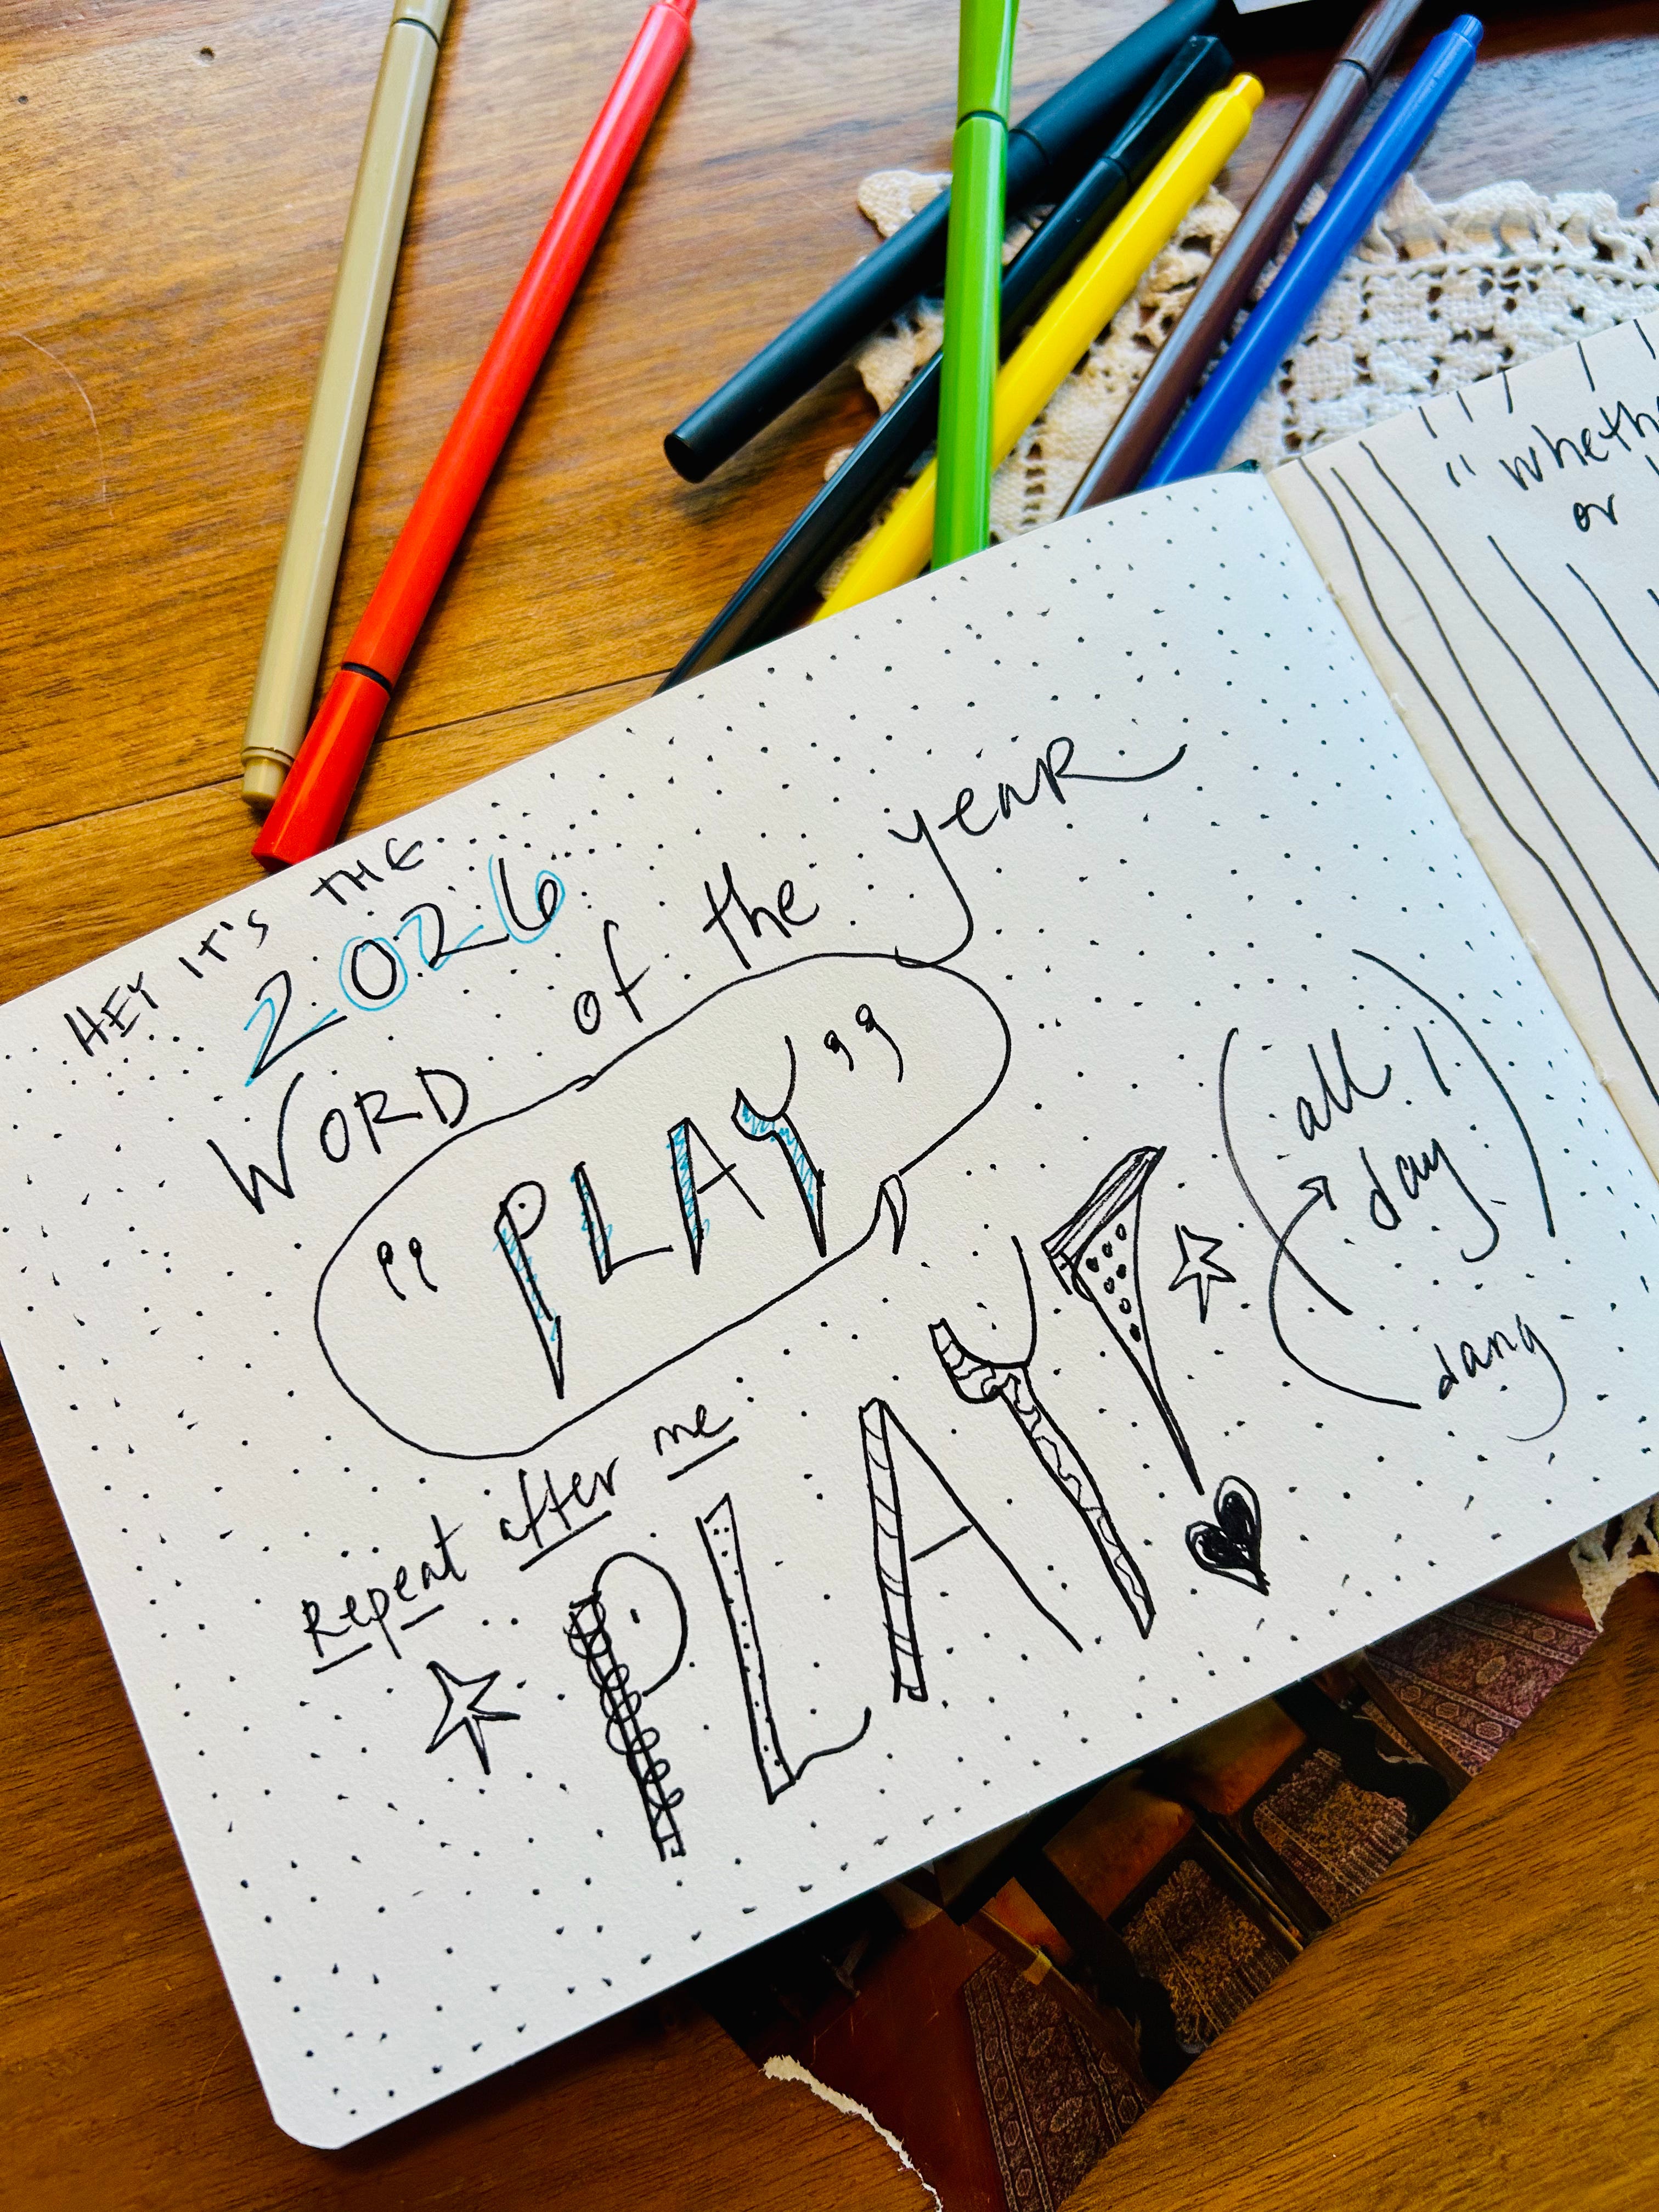 HEY IT'S THE
2026
WORD of the year
"PLAY"
Repeat after me
PLAY!
(all dang day)
"wheth
or